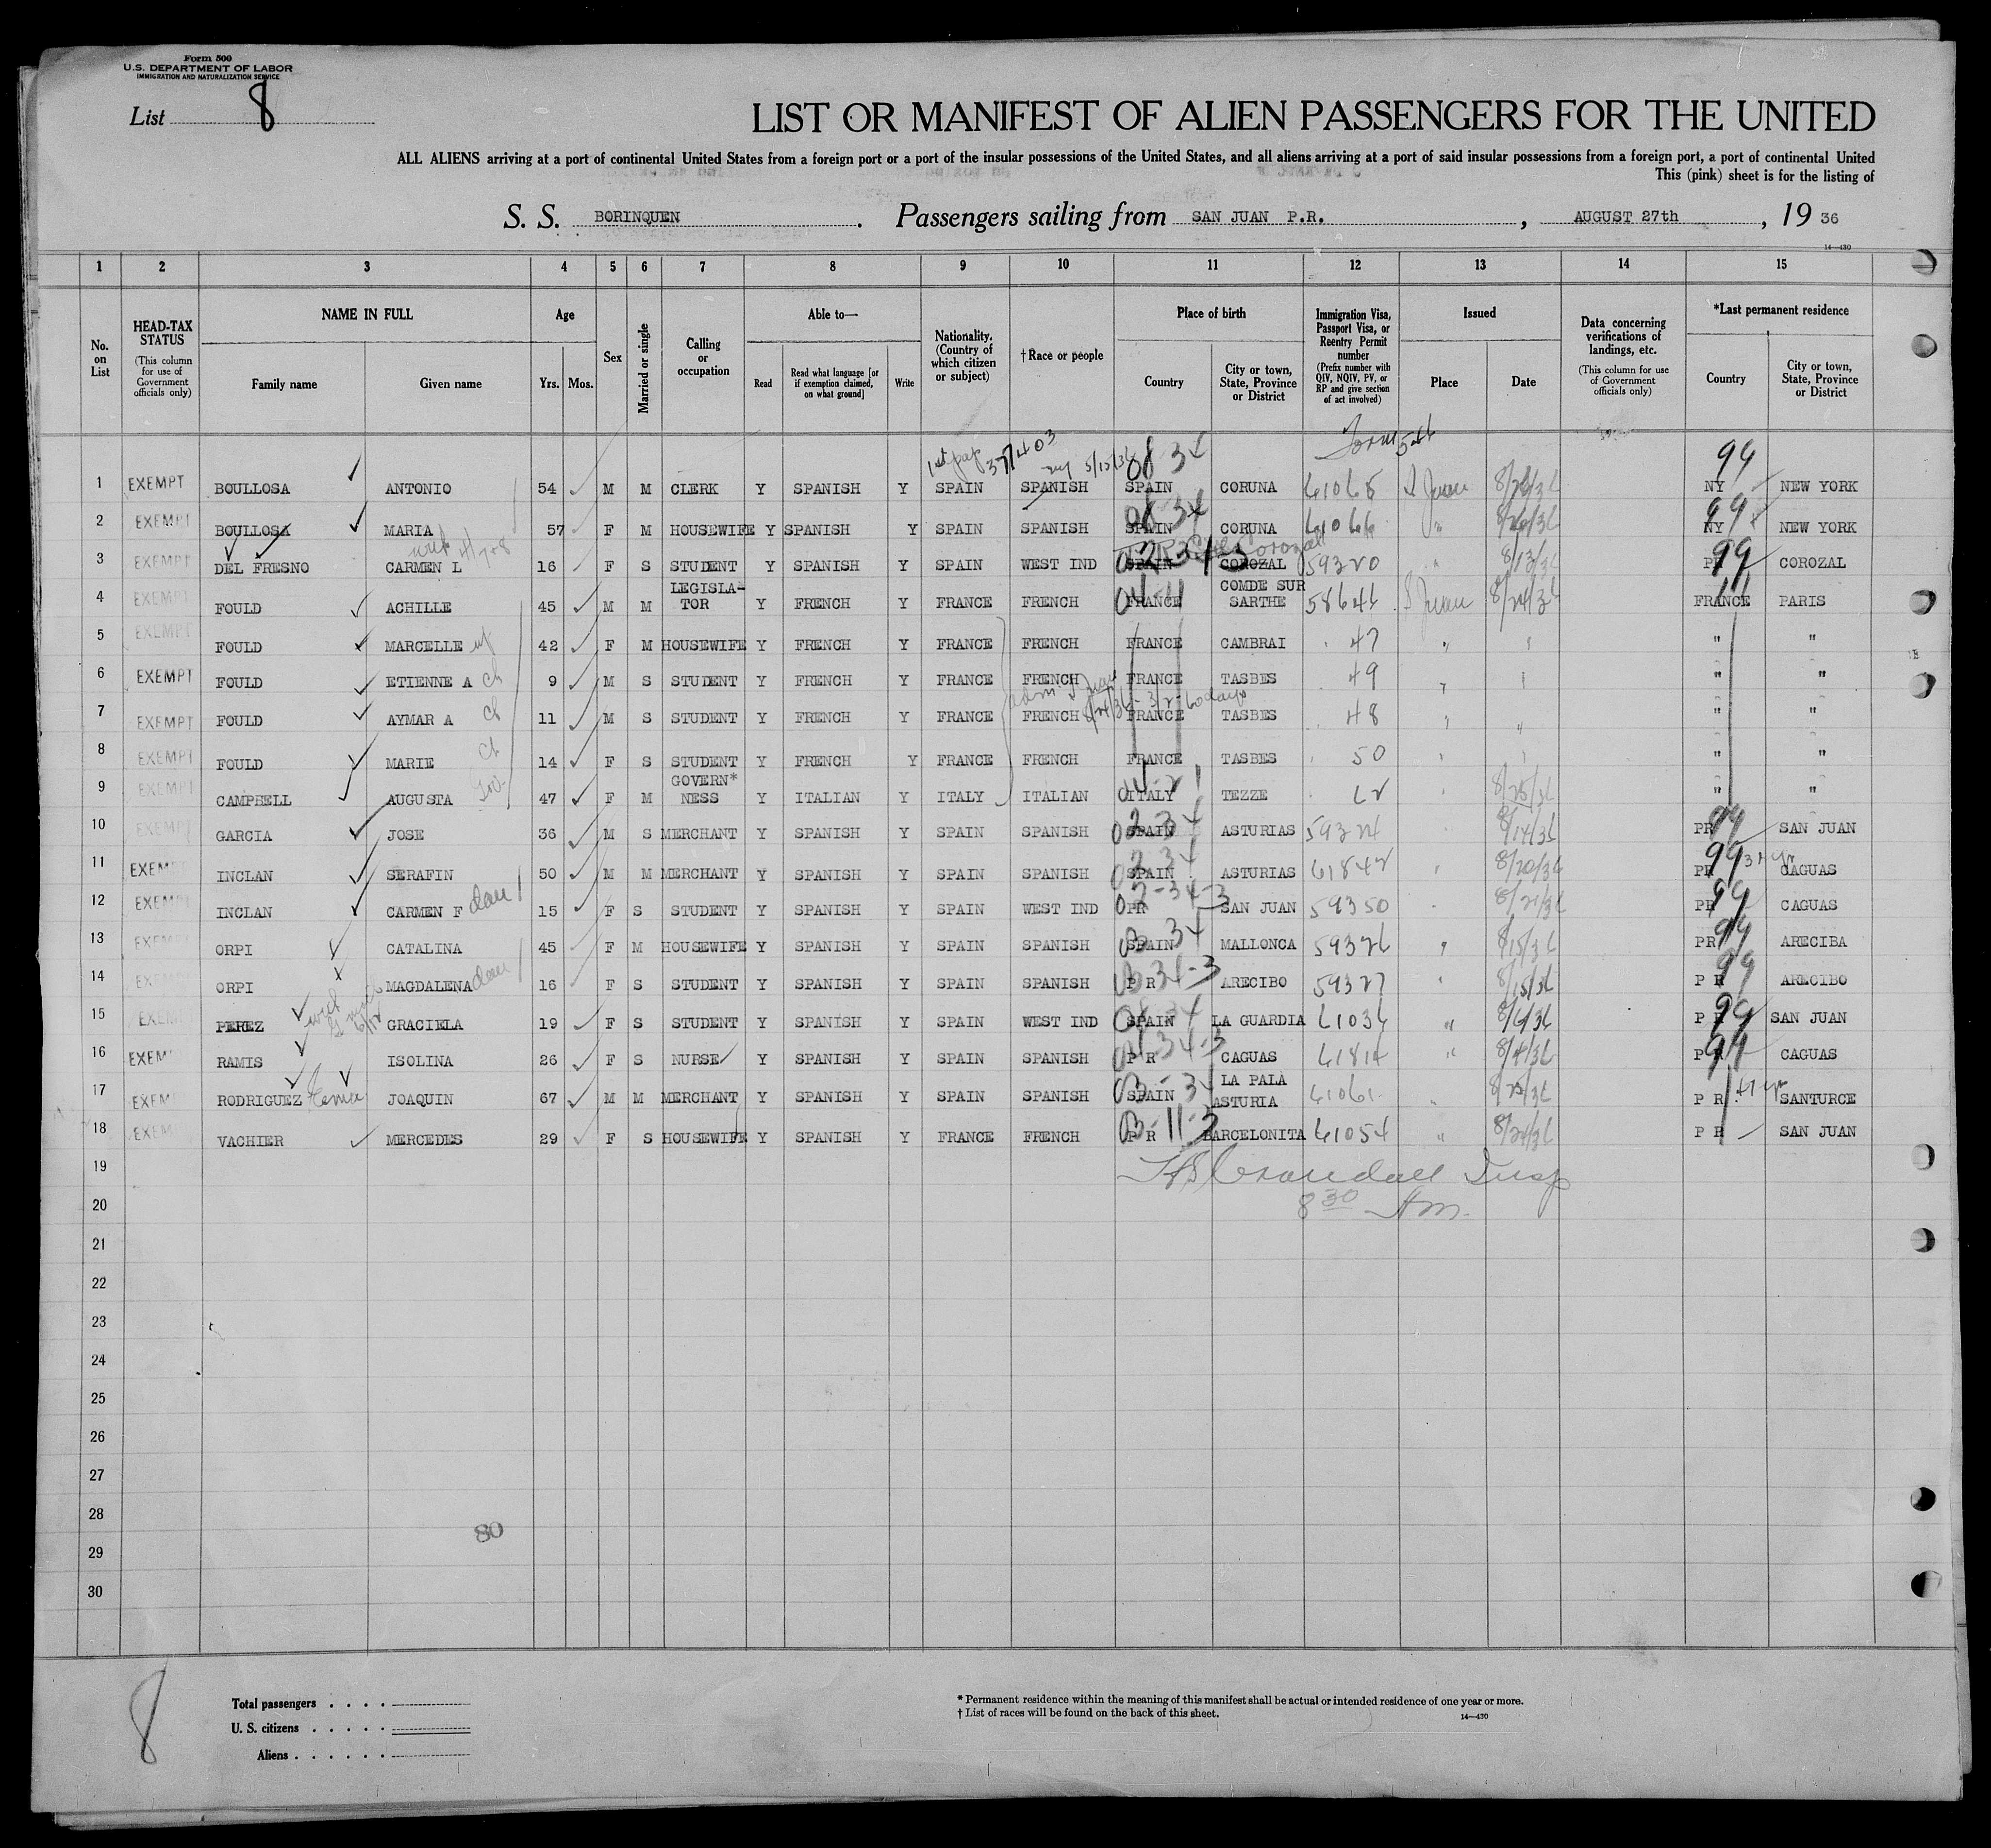 Form 500
U.S. DEPARTMENT OF LABOR
IMMIGRATION AND NATURALIZATION SERVICE
List 8
LIST OR MANIFEST OF ALIEN PASSENGERS FOR THE UNITED
ALL ALIENS arriving at a port of continental United States from a foreign port or a port of the insular possessions of the United States, and all aliens arriving at a port of said insular possessions from a foreign port, a port of continental United
This (pink) sheet is for the listing of
S. S. BORINQUEN. Passengers sailing from SAN JUAN P.R., AUGUST 27th, 19 36
14—430
1 2 3 4 5 6 7 8 9 10 11 12 13 14 15
No. on List
HEAD-TAX STATUS (This column for use of Government officials only)
NAME IN FULL Family name Given name
Age Yrs. Mos.
Sex
Married or single
Calling or occupation
Able to— Read Read what language [or if exemption claimed, on what ground] Write
Nationality. (Country of which citizen or subject)
†Race or people
Place of birth Country City or town, State, Province or District
Immigration Visa, Passport Visa, or Reentry Permit number (Prefix number with QIV, NQIV, PV, or RP and give section of act involved)
Issued Place Date
Data concerning verifications of landings, etc. (This column for use of Government officials only)
*Last permanent residence Country City or town, State, Province or District
Form 546
1 EXEMPT BOULLOSA ANTONIO 54 M M CLERK Y SPANISH Y SPAIN SPANISH SPAIN CORUNA 61065 S Juan NY 99 NEW YORK
2 EXEMPT BOULLOSA MARIA 57 F M HOUSEWIFE Y SPANISH Y SPAIN SPANISH SPAIN CORUNA 61066 " 8/26/36 NY 99 NEW YORK
3 EXEMPT DEL FRESNO CARMEN L 16 F S STUDENT Y SPANISH Y SPAIN WEST IND SPAIN COROZAL 59320 " 8/13/36 PR 99 COROZAL
4 EXEMPT FOULD ACHILLE 45 M M LEGISLA-TOR Y FRENCH Y FRANCE FRENCH FRANCE COMDE SUR SARTHE 58646 S Juan 8/24/36 FRANCE PARIS
5 EXEMPT FOULD MARCELLE wf 42 F M HOUSEWIFE Y FRENCH Y FRANCE FRENCH FRANCE CAMBRAI 47 " " " "
6 EXEMPT FOULD ETIENNE A ch 9 M S STUDENT Y FRENCH Y FRANCE FRENCH FRANCE TASBES 49 " " " "
7 EXEMPT FOULD AYMAR A ch 11 M S STUDENT Y FRENCH Y FRANCE FRENCH FRANCE TASBES 48 " " " "
8 EXEMPT FOULD MARIE ch 14 F S STUDENT Y FRENCH Y FRANCE FRENCH FRANCE TASBES 50 " " " "
9 EXEMPT CAMPBELL AUGUSTA Gov. 47 F M GOVERN*NESS Y ITALIAN Y ITALY ITALIAN ITALY TEZZE 62 8/25/36 " "
10 EXEMPT GARCIA JOSE 36 M S MERCHANT Y SPANISH Y SPAIN SPANISH SPAIN ASTURIAS 59324 8/14/36 PR 99 SAN JUAN
11 EXEM INCLAN SERAFIN 50 M M MERCHANT Y SPANISH Y SPAIN SPANISH SPAIN ASTURIAS 61842 " 8/20/36 PR 99 CAGUAS
12 EXEM INCLAN CARMEN F dau 15 F S STUDENT Y SPANISH Y SPAIN WEST IND PR SAN JUAN 59350 " 8/21/36 PR 99 CAGUAS
13 EXEM ORPI CATALINA 45 F M HOUSEWIFE Y SPANISH Y SPAIN SPANISH SPAIN MALLONCA 59326 " 8/15/36 PR 99 ARECIBA
14 EXEM ORPI MAGDALENA dau 16 F S STUDENT Y SPANISH Y SPAIN SPANISH P R ARECIBO 59327 " 8/15/36 P R 99 ARECIBO
15 EXEM PEREZ GRACIELA 19 F S STUDENT Y SPANISH Y SPAIN WEST IND SPAIN LA GUARDIA 61036 " 8/6/36 P R 99 SAN JUAN
16 EXEM RAMIS ISOLINA 26 F S NURSE Y SPANISH Y SPAIN SPANISH P R CAGUAS 61814 " 8/4/36 P R 99 CAGUAS
17 EXEM RODRIGUEZ JOAQUIN 67 M M MERCHANT Y SPANISH Y SPAIN SPANISH SPAIN LA PALA ASTURIA 61061 " 8/25/36 P R SANTURCE
18 EXEM VACHIER MERCEDES 29 F S HOUSEWIFE Y SPANISH Y FRANCE FRENCH P R BARCELONITA 61054 " 8/24/36 P R SAN JUAN
19
Crandall Insp
20
8 30 Am.
21
22
23
24
25
26
27
28
80
29
30
8
Total passengers
U. S. citizens
Aliens
* Permanent residence within the meaning of this manifest shall be actual or intended residence of one year or more.
† List of races will be found on the back of this sheet.
14—430